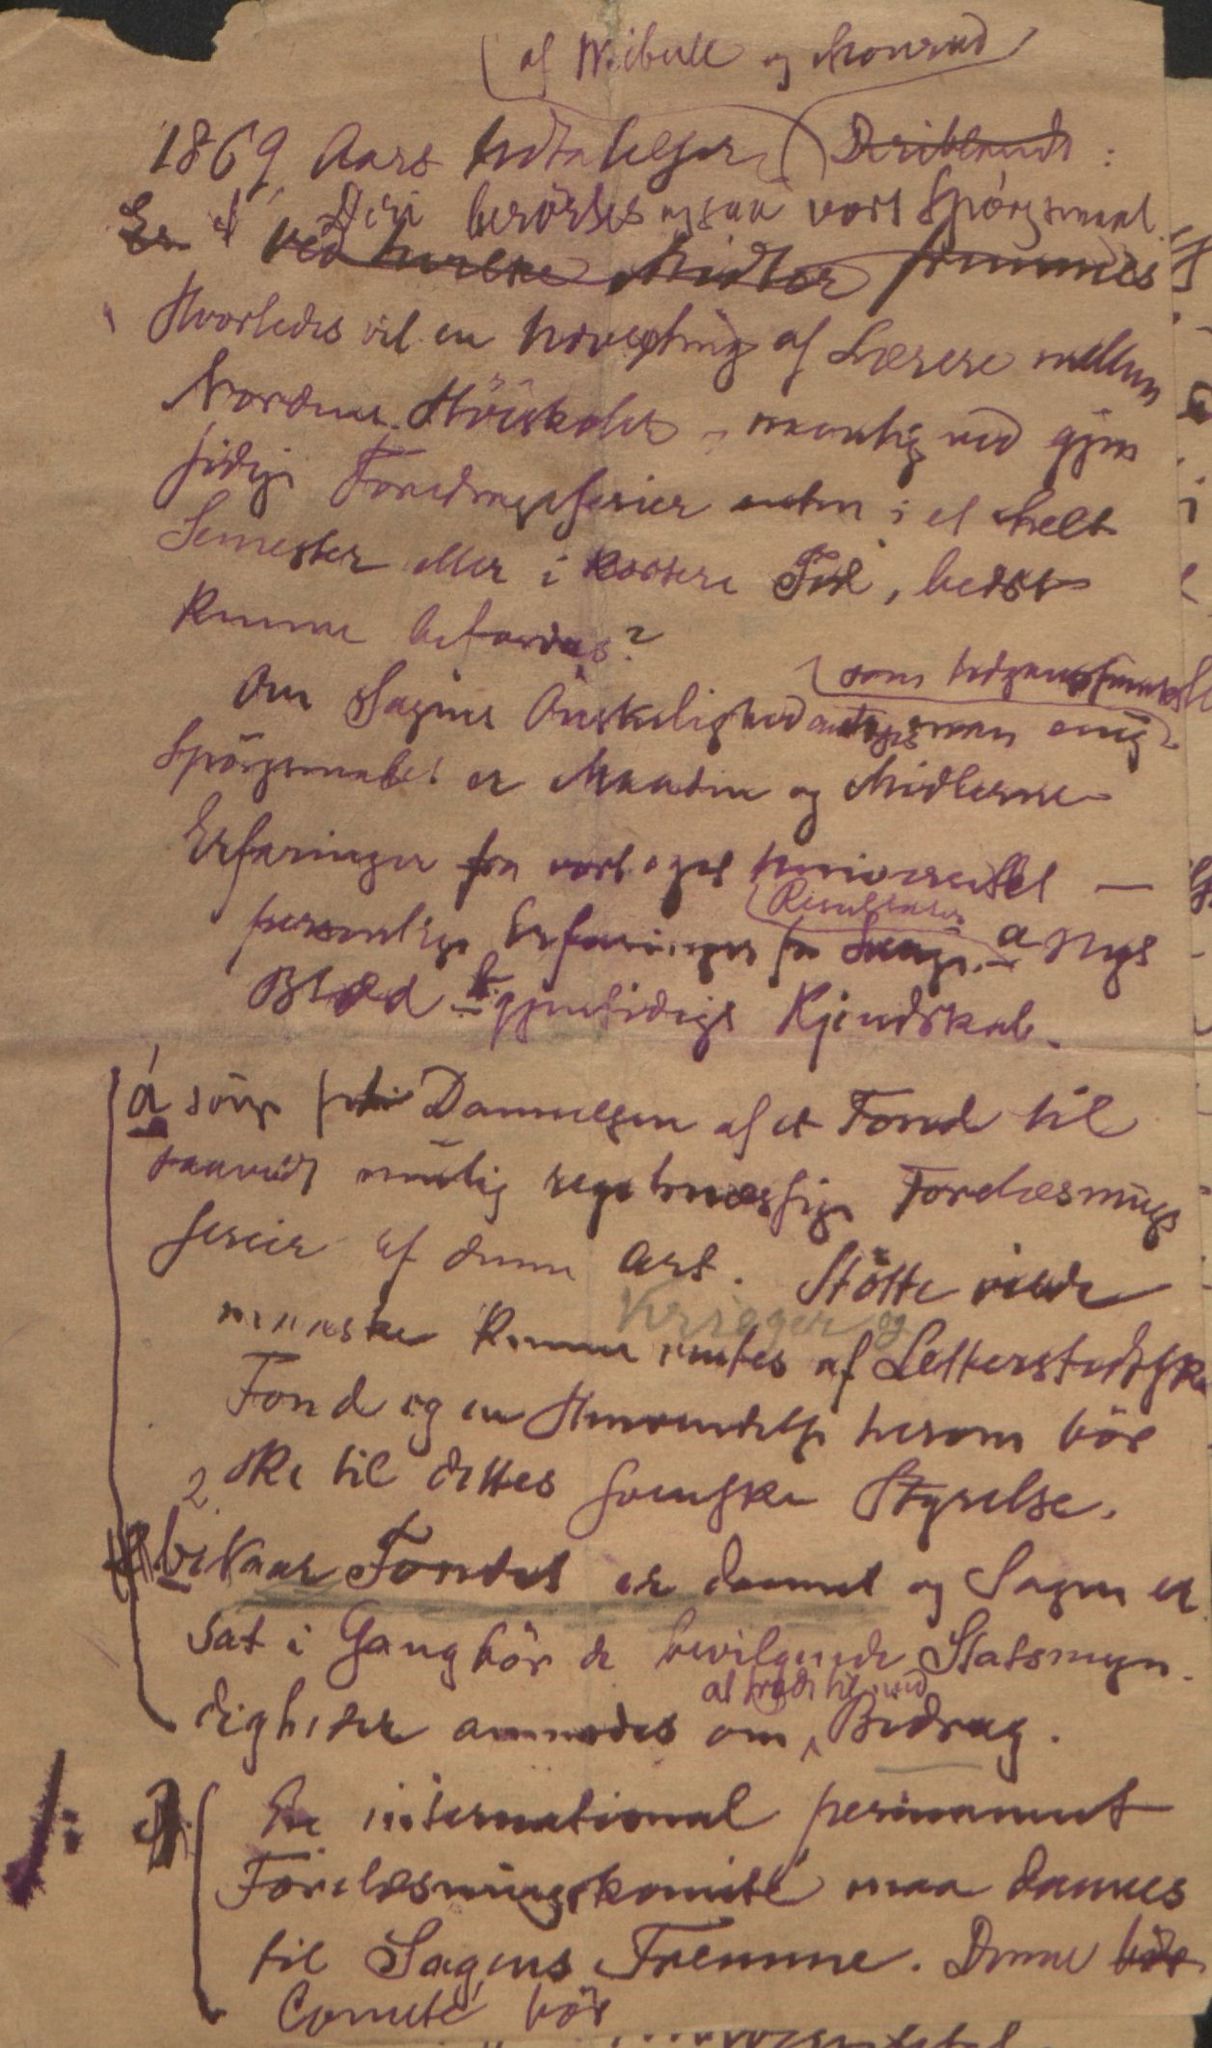 (af Weibull og Monrad)
1869 Aars Udtalelser Deriblandt:
Deri berörtes ogsaa vort Spörgsmaal.
Er et ved hvilke Midler fremmes
Hvorledes vil en Udvexling af Lærere mellem
Nordens Höiskoler, navnlig ved gjen
sidige Foredragsserier enten i et helt
Semester eller i kortere Tid, bedst
kunne befordres?
(som Udgangspunkt
Om Sagens Önskelighed antages man enig
Spörgsmalet er Maaden og Midlerne
Erfaringer fra vort eget Universitet —
(Resultater
personlige Erfaringer fra a nyt
Blod b. gjensidigt Kjendskab.
a sörge for Dannelsen af et Fond til
saavidt mulig regelmæssige Forelæsnings
serier af denne Art. Stötte vilde
Krieger og
maaske kunne ventes af Letterstedtske
Fond og en Henvendelse herom bör
2 ske til dettes svenske Styrelse.
b. Naar Fondet er dannet og Sagen er
sat i Gang bör de bevilgende Statsmyn-
at træde til med
digheder anmodes om Bidrag.
En international permanent
Forelæsningskomité maa dannes
til Sagens Fremme. Denne bör
Comité bör